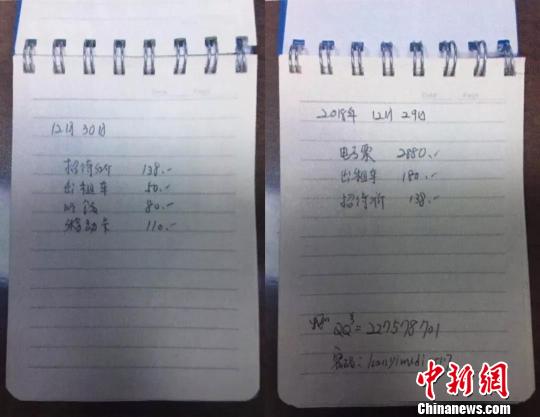 12月30日
招待所 138.-
出租车 50.-
吃饭 80.-
移动卡 110.-
2018年 12月 29日
电子票 2880.-
出租车 180.-
招待所 138.-
QQ号=227578701
密码:
中新网
Chinanews.com